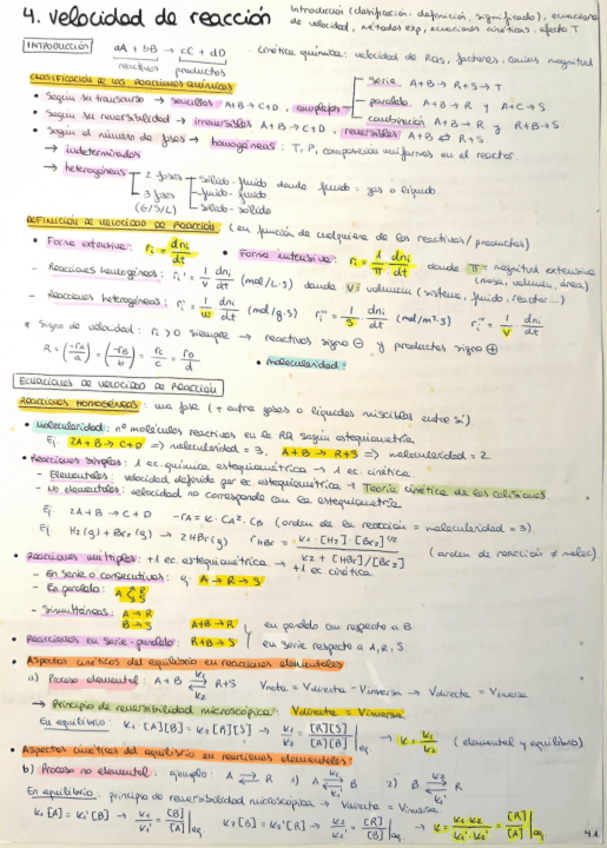 4. velocidad de reacción
Introducción (clasificación, definición, significado), ecuaciones
de velocidad, métodos exp, ecuaciones cinéticas, efecto T.
INTRODUCCIÓN
aA + bB → cC + dD
reactivos productos
· Cinética química: velocidad de RQs, factores, causas magnitud
CLASIFICACIÓN DE LAS REACCIONES QUÍMICAS
• Según su transcurso → sencillas A+B → C+D, complejas
serie A+B → R+S → T
paralelo A+B → R y A+C → S
combinación A+B → R y R+B → S
• Según su reversibilidad → irreversibles A+B → C+D, reversibles A+B ⇄ R+S
• Según el número de fases → homogéneas: T, P, composición uniformes en el reactor.
→ indeterminados
→ heterogéneas
2 fases
3 fases
(G/S/L)
sólido-fluido donde fluido = gas o líquido.
fluido-fluido
sólido-sólido
DEFINICIÓN DE VELOCIDAD DE REACCIÓN (en función de cualquiera de los reactivos/productos)
• Forma extensiva: ri = dni/dt
• Forma intensiva: ri = 1/π · dni/dt donde π = magnitud extensiva
(masa, volumen, área)
- Reacciones homogéneas: ri' = 1/V dni/dt (mol/L·s) donde V = volumen (sistema, fluido, reactor...)
- Reacciones heterogéneas: ri' = 1/W dni/dt (mol/g·s) ri'' = 1/S dni/dt (mol/m²·s) ri''' = 1/V dni/dt
* Signo de velocidad: ri > 0 siempre → reactivos signo ⊖ y productos signo ⊕
R = (-rA/a) = (-rB/b) = rC/c = rD/d
• molecularidad:
ECUACIONES DE VELOCIDAD DE REACCIÓN
REACCIONES HOMOGÉNEAS: una fase (+ entre gases o líquidos miscibles entre sí).
• Molecularidad: nº moléculas reactivas en la RQ según estequiometría
Ej. 2A + B → C + D => molecularidad = 3. A + B → R+S => molecularidad = 2
• Reacciones simples: 1 ec. química estequiométrica → 1 ec. cinética.
- Elementales: velocidad definida por ec estequiométrica → Teoría cinética de las colisiones.
- No elementales: velocidad no corresponde con la estequiometría
Ej. 2A + B → C + D -rA = K · CA² · CB (orden de la reacción = molecularidad = 3).
Ej. H2(g) + Br2(g) → 2HBr(g) rHBr = K1 · [H2] · [Br2]^1/2 / K2 + [HBr]/[Br2] (orden de reacción ≠ molec).
• Reacciones múltiples: +1 ec. estequiométrica → +1 ec cinética.
- En serie o consecutivas: ej. A → R → S
- En paralelo: A R S
- Simultáneas: A → R
B → S
• Reacciones en serie-paralelo:
A+B → R
R+B → S
en paralelo con respecto a B
en serie respecto a A, R, S
• Aspectos cinéticos del equilibrio en reacciones elementales:
a) Proceso elemental: A+B ⇄ R+S k1 k2 Vneta = Vdirecta - Vinversa → Vdirecta = Vinversa
→ Principio de reversibilidad microscópica: Vdirecta = Vinversa
En equilibrio: K1 · [A][B] = K2 [R][S] → K1/K2 = [R][S]/[A][B] |eq. → K = K1/K2 (elemental y equilibrio)
• Aspectos cinéticos del equilibrio en reacciones elementales:
b) Proceso no elemental: ejemplo: A ⇄ R 1) A ⇄ B k1 k1' 2) B ⇄ R k2 k2'
En equilibrio: principio de reversibilidad microscópica → Vdirecta = Vinversa.
K1 [A] = K1' [B] → K1/K1' = [B]/[A] |eq. K2 [B] = K2' [R] → K2/K2' = [R]/[B] |eq. → K = K1·K2/K1'·K2' = [R]/[A] |eq.
4.1